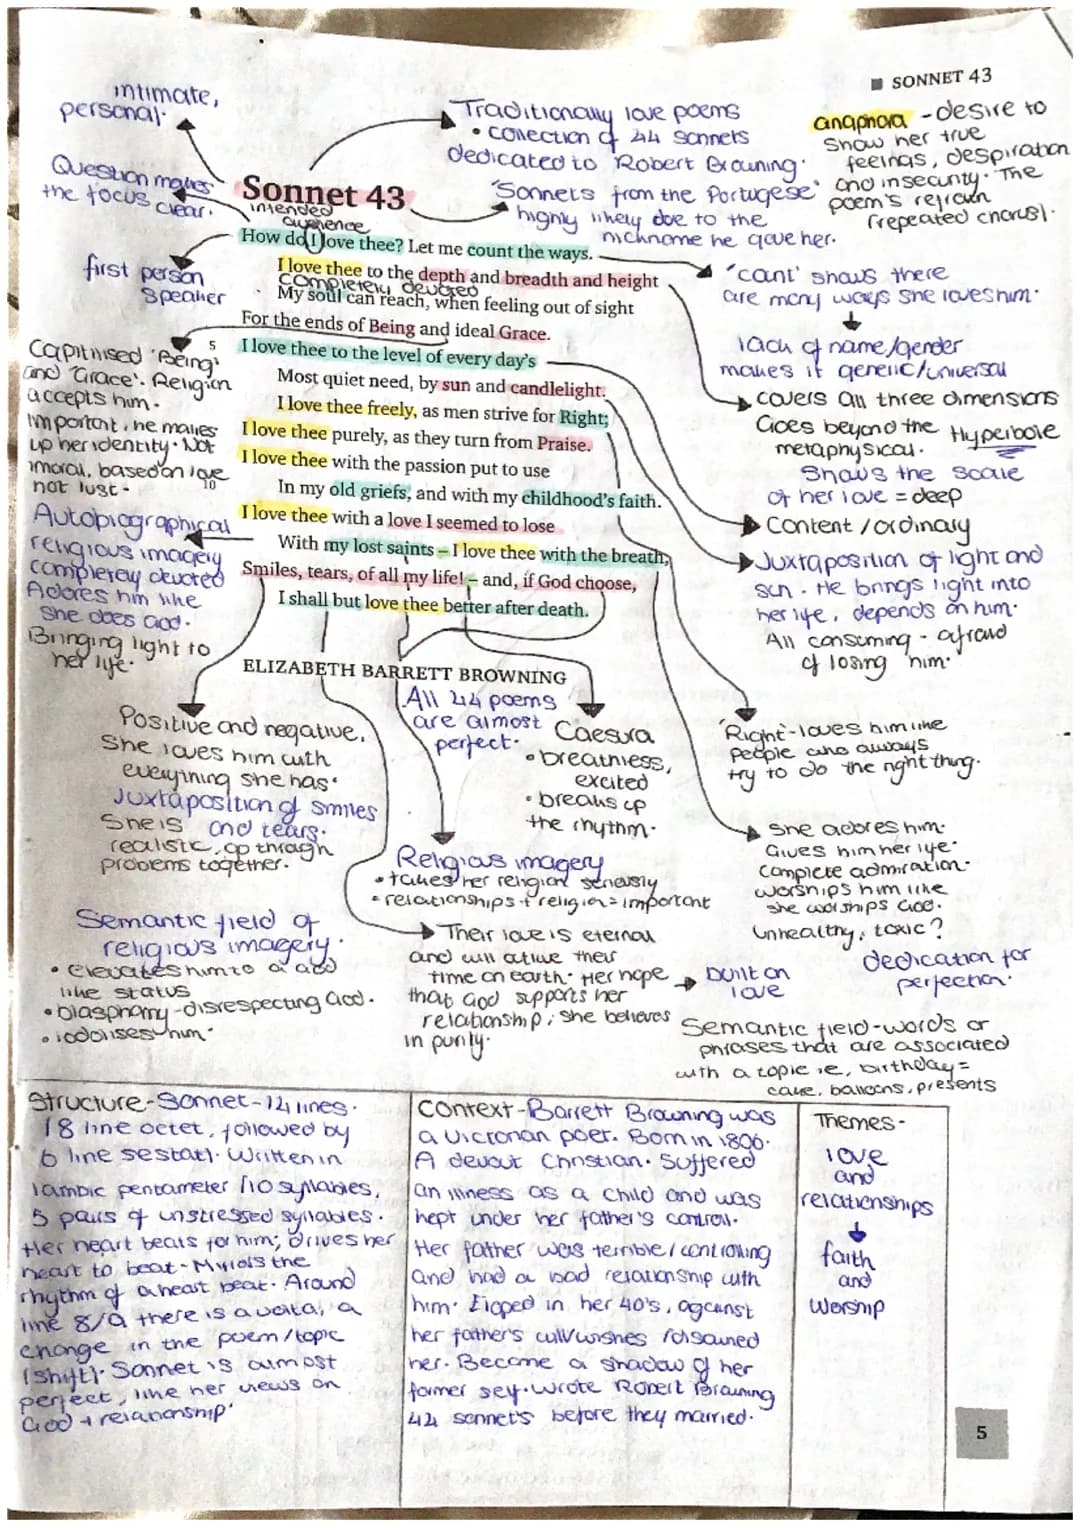 SONNET 43
intimate,
personal.
Question makes
the focus clear.
first person
speaker
Traditionally love poems
• collection of 44 sonnets
dedicated to Robert Browning.
'Sonnets from the Portugese'
highly likely due to the
nickname he gave her.
anaphora - desire to
show her true
feelings, despiration
and insecurity. The
poem's refrain
(repeated chorus).
Sonnet 43
intended
audience
How do I love thee? Let me count the ways.
I love thee to the depth and breadth and height
completely devoted
My soul can reach, when feeling out of sight
For the ends of Being and ideal Grace.
5
I love thee to the level of every day's
Most quiet need, by sun and candlelight.
I love thee freely, as men strive for Right;
I love thee purely, as they turn from Praise.
I love thee with the passion put to use
10
In my old griefs, and with my childhood's faith.
I love thee with a love I seemed to lose
With my lost saints – I love thee with the breath,
Smiles, tears, of all my life! – and, if God choose,
I shall but love thee better after death.
ELIZABETH BARRETT BROWNING
Capitilised 'Being'
and 'Grace'. Religion
accepts him.
Important, he makes
up her identity. Not
imoral, based on love
not lust.
Autobiographical
religious imagery
completely devoted
Adores him like
she does God.
Bringing light to
her life.
'count' shows there
are many ways she loves him.
lack of name/gender
makes it generic/universal
covers all three dimensions
Goes beyond the
metaphysical.
Hyperbole
Shows the scale
of her love = deep
Content / ordinary
Juxtaposition of light and
sun. He brings light into
her life, depends on him.
All consuming - afraid
of losing him.
'Right' - loves him like
people who always
try to do the right thing.
She adores him.
Gives him her life.
complete admiration.
worships him like
she worships God.
unhealthy, toxic?
dedication for
perfection.
Positive and negative,
she loves him with
everything she has.
Juxtaposition of smiles
and tears.
She is
realistic, go through
problems together.
All 44 poems
are almost
perfect.
Caesura
• breathless,
excited
• breaks up
the rhythm.
Religious imagery
• takes her religion seriously
• relationships + religion = important
Their love is eternal
and will outlive their
time on earth. Her hope
that God supports her
relationship; she believes
in purity.
built on
love
Semantic field of
religious imagery.
• elevates him to a God
like status
• blasphamy - disrespecting God.
• iodolises him.
Semantic field - words or
phrases that are associated
with a topic ie, birthday =
cake, balloons, presents
Structure - Sonnet - 14 lines.
18 line octet, followed by
6 line sestatl. Written in
Iambic pentameter /10 syllables,
5 pairs of unstressed syllables.
Her heart beats for him; drives her
heart to beat - Mirrors the
rhythm of a heart beat. Around
line 8/9 there is a volta, a
change in the poem/topic
(shift). Sonnet is almost
perfect, like her views on
God + relationship.
Context - Barrett Browning was
a Victorian poet. Born in 1806.
A devout Christian. Suffered
an illness as a child and was
kept under her father's controll.
Her father was terrible / controlling
and had a bad relationship with
him. Eloped in her 40's, against
her father's will/wishes /disowned
her. Became a shadow of her
former self. Wrote Robert Browning
44 sonnet's before they married.
Themes -
love
and
relationships
faith
and
worship
5